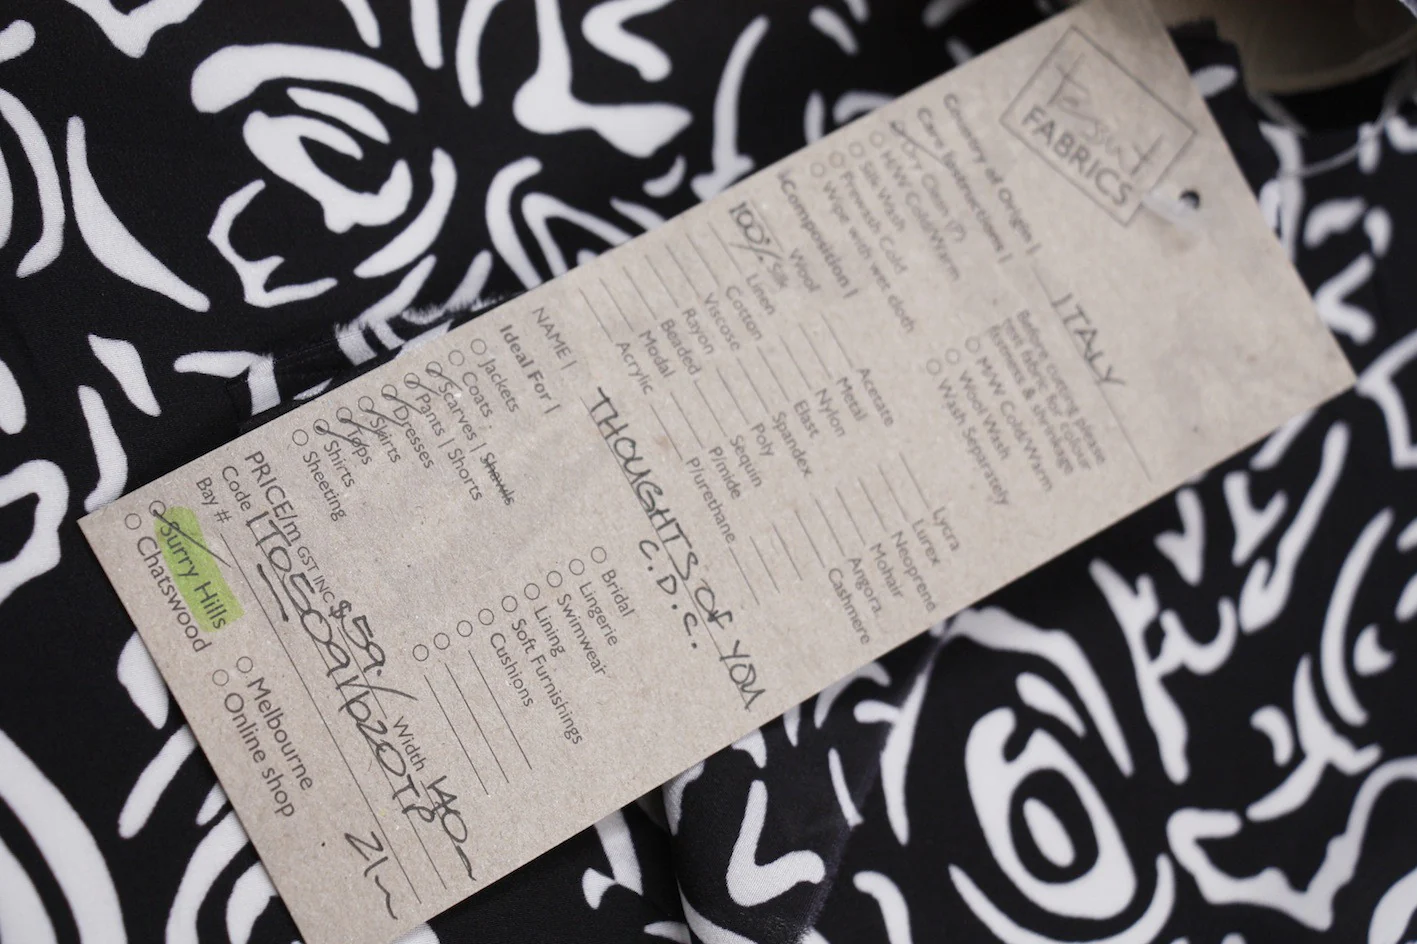 Tessuti
FABRICS
Country of Origin | ITALY
Care Instructions |
Before cutting please
test fabric for colour
fastness & shrinkage
Dry Clean (P)
H/W Cold/Warm
Silk Wash
Prewash Cold
Wipe with wet cloth
M/W Cold/Warm
Wool Wash
Wash Separately
Composition |
Wool
100% Silk
Linen
Cotton
Viscose
Rayon
Beaded
Modal
Acrylic
Acetate
Metal
Nylon
Elast
Spandex
Poly
Sequin
P/mide
P/urethane
Lycra
Lurex
Neoprene
Mohair
Angora
Cashmere
NAME | THOUGHTS OF YOU
C.D.C.
Ideal For |
Jackets
Coats
Scarves | Shawls
Pants | Shorts
Dresses
Skirts
Tops
Shirts
Sheeting
Bridal
Lingerie
Swimwear
Lining
Soft Furnishings
Cushions
PRICE/m GST INC $59./ Width 140
Code |
Bay #
Surry Hills
Chatswood
Melbourne
Online shop